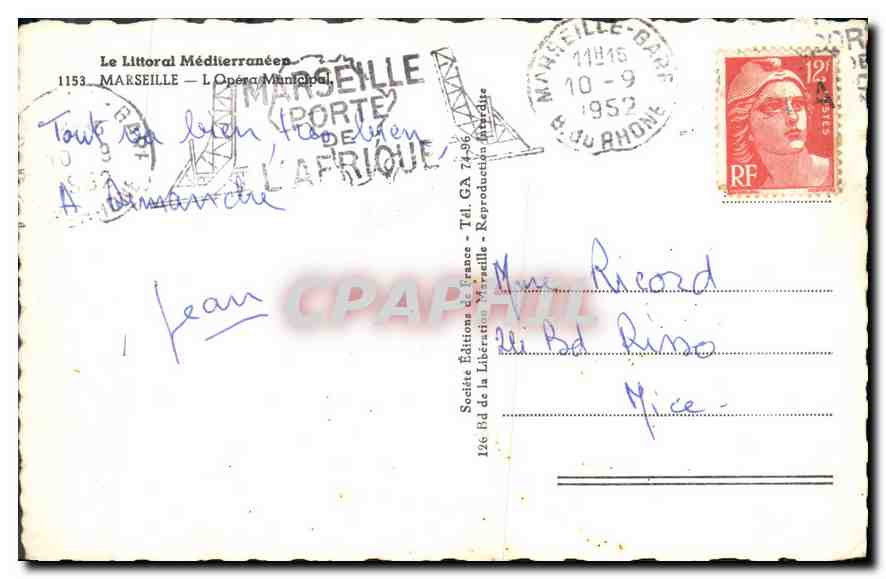 Le Littoral Méditerranéen
1153 MARSEILLE — L'Opéra Municipal.
MARSEILLE
PORTE
DE
L'AFRIQUE
MARSEILLE-GARE
11H15
10-9
1952
B. du RHONE
GARE
12F
POSTES
RF
Tout va bien, très bien
A Dimanche
Jean
Mme Ricord
24 Bd Risso
Nice
Société Editions de France - Tél. GA 74-96
126 Bd de la Libération Marseille - Reproduction Interdite
CPAPHIL